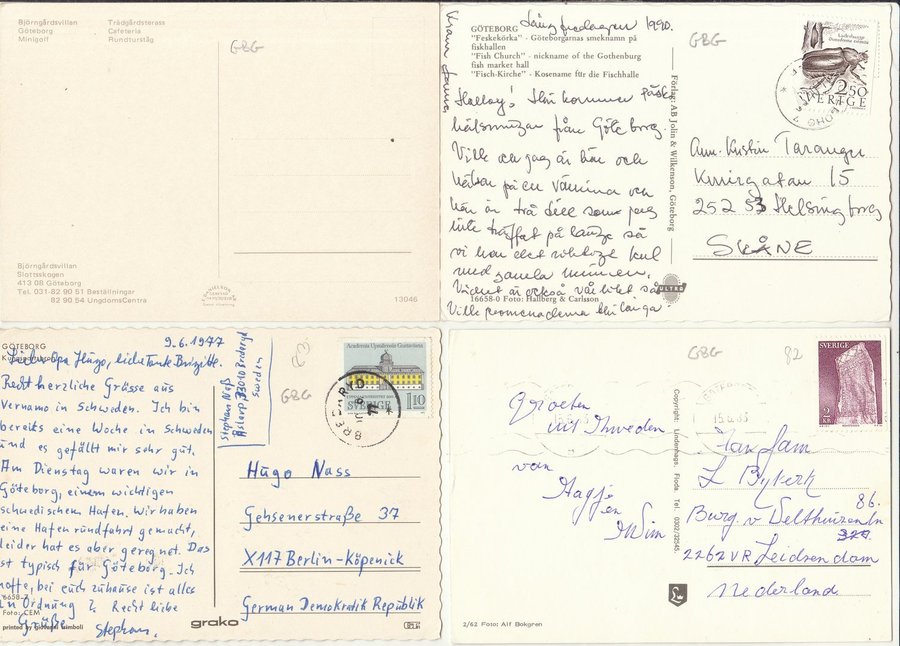 Björngårdsvillan
Göteborg
Minigolf
Trädgårdsterass
Cafeteria
Rundturståg
GBG
Björngårdsvillan
Slottsskogen
413 08 Göteborg
Tel. 031-82 90 51 Beställningar
82 90 54 UngdomsCentra
13046
Långfredagen 1990.
GÖTEBORG
"Feskekörka" - Göteborgarnas smeknamn på
fiskhallen
"Fish Church" - nickname of the Gothenburg
fish market hall
"Fisch-Kirche" - Kosename für die Fischhalle
Kram
Förlag: AB Jolin & Wilkenson, Göteborg
GBG
2.50
SVERIGE
Halloy! Här kommer påsk
hälsningar från Göteborg.
Ville och jag är här och
hälsar på en väninna och
här är två till som jag
inte träffat på länge så
vi har det roligt kul
med gamla minnen.
Vädret är också vårlikt så
Ville promenaderna blir långa
Ann-Kristin
15
252 53 Helsingborg
SKÅNE
16658-0 Foto: Hallberg & Carlsson
ULTRO
GÖTEBORG
9.6.1977
Lieber Opa Hugo, liebe Tante Brigitte.
Recht herzliche Grüsse aus
Vernamo in Schweden. Ich bin
bereits eine Woche in Schweden
und es gefällt mir sehr gut.
Am Dienstag waren wir in
Göteborg, einem wichtigen
schwedischen Hafen. Wir haben
eine Hafenrundfahrt gemacht,
leider hat es aber geregnet. Das
ist typisch für Göteborg. Ich
hoffe, bei euch zuhause ist alles
in Ordnung. Recht liebe
Grüße
Stephan.
6658-7
Foto: CEM
printed by giovanni trimboli
Stephan Naß
Sweden
83
GBG
Academia Upsaliensis Gustaviana
SVERIGE 110
BREDARYD
Hugo Nass
Gehsenerstraße 37
X117 Berlin-Köpenick
German Demokratik Republik
grako
GBG
82
SVERIGE
2 KR
Groeten
uit Zweden
van
Aagje
en
Wim
Copyright: Lindenhags, Floda Tel. 0302/32545.
Fam
L Bykerk
Burg. v Delthuizenln
86.
320.
2262 VR Leidsendam
Nederland
2/62 Foto: Alf Bokgren